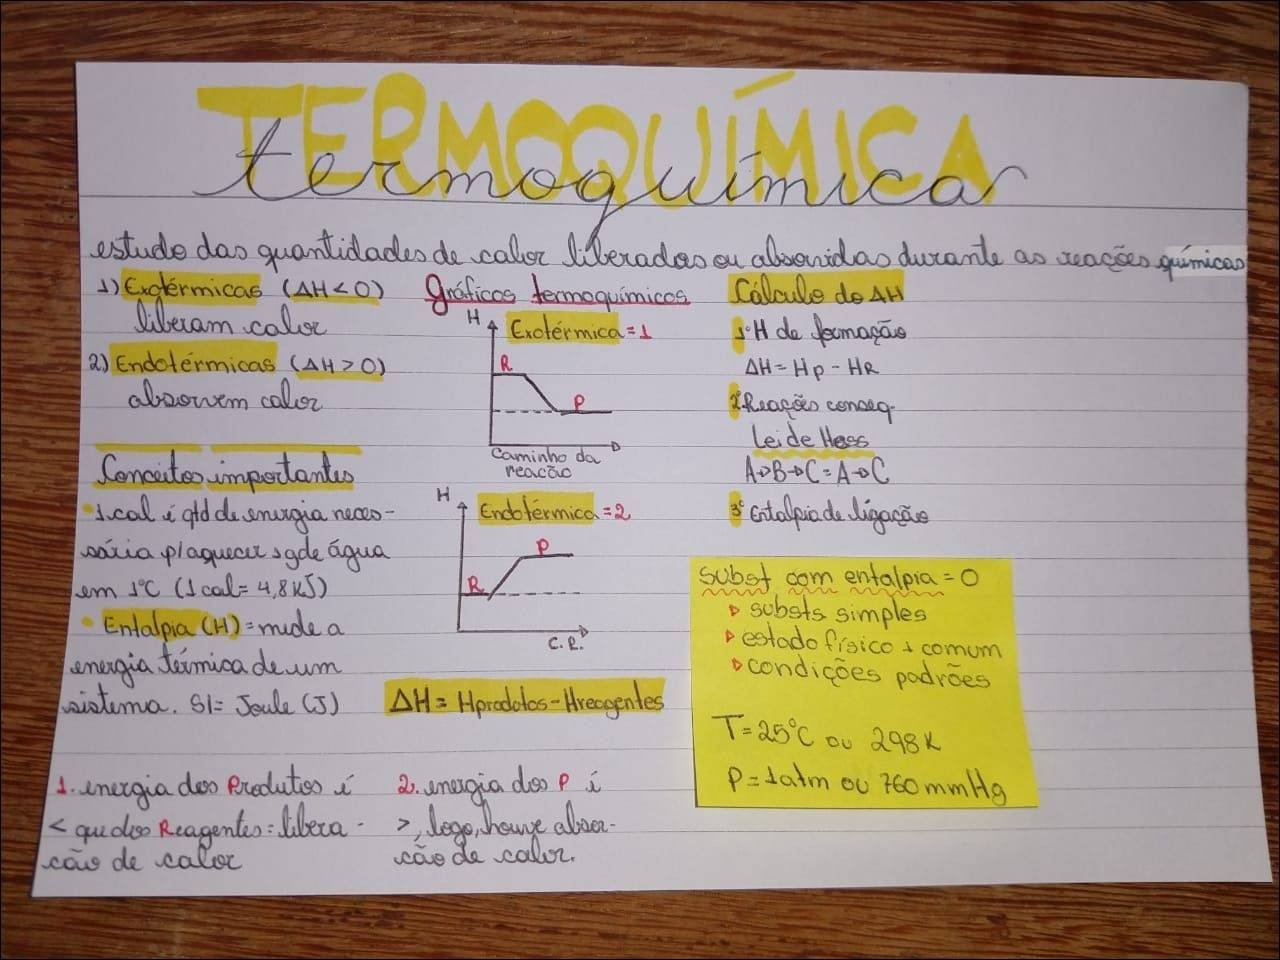 TERMOQUÍMICA
termoquímica
estudo das quantidades de calor liberadas ou absorvidas durante as reações químicas
1) Exotérmicas (ΔH < 0)
liberam calor
2) Endotérmicas (ΔH > 0)
absorvem calor
Conceitos importantes
• 1 cal é qtd de energia neces-
sária p/ aquecer 1g de água
em 1°C (1 cal = 4,8 KJ)
• Entalpia (H) = mede a
energia térmica de um
sistema. SI = Joule (J)
Gráficos termoquímicos
H
Exotérmica = 1
R
P
Caminho da
reação
H
Endotérmica = 2
P
R
C.R.
ΔH = Hprodutos - Hreagentes
Cálculo do ΔH
1° H de formação
ΔH = HP - HR
2° Reações conseq.
Lei de Hess
A→B→C = A→C
3° Entalpia de ligação
subst com entalpia = 0
substs simples
estado físico + comum
condições padrões
T = 25°C ou 298 K
P = 1 atm ou 760 mmHg
1. energia dos Produtos é
< que dos Reagentes = libera-
ção de calor
2. energia dos P é
>, logo, houve absor-
ção de calor.